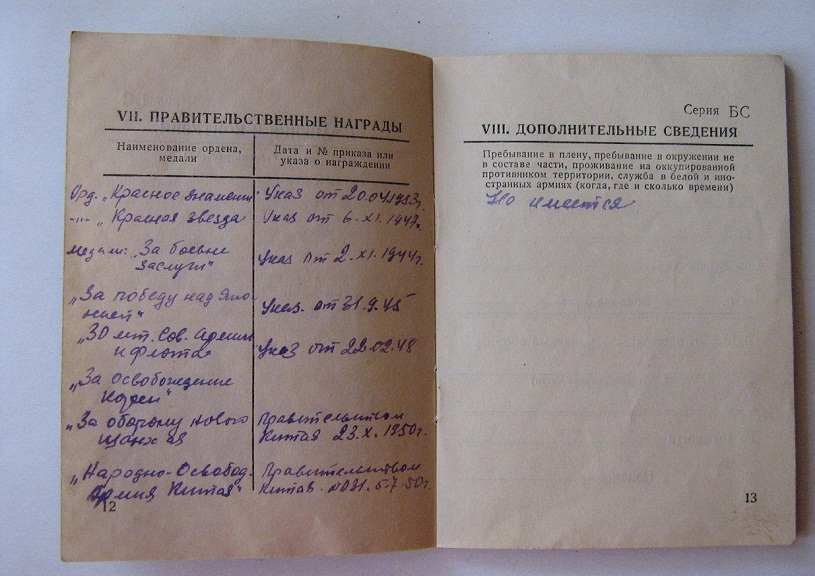 VII. ПРАВИТЕЛЬСТВЕННЫЕ НАГРАДЫ
Наименование ордена, медали
Дата и № приказа или указа о награждении
Орд. „Красное знамени" Указ от 20.04.1953г.
-"- „Красная звезда Указ от 6.XI.1947г.
медали: „За боевые
заслуги" Указ от 2.XI.1944г.
„За победу над Япо-
нией" Указ. от 31.9.45
„30 лет. Сов. Армии
и флота" Указ от 22.02.48
„За освобождение
Кореи"
„За оборону нового Правительством
Шанхая Китая 23.X.1950г.
„Народно-Освобод. Правительством
Армия Китая" Китая. №031.5.7.50г.
12
Серия БС
VIII. ДОПОЛНИТЕЛЬНЫЕ СВЕДЕНИЯ
Пребывание в плену, пребывание в окружении не
в составе части, проживание на оккупированной
противником территории, служба в белой и ино-
странных армиях (когда, где и сколько времени)
Не имеется
13